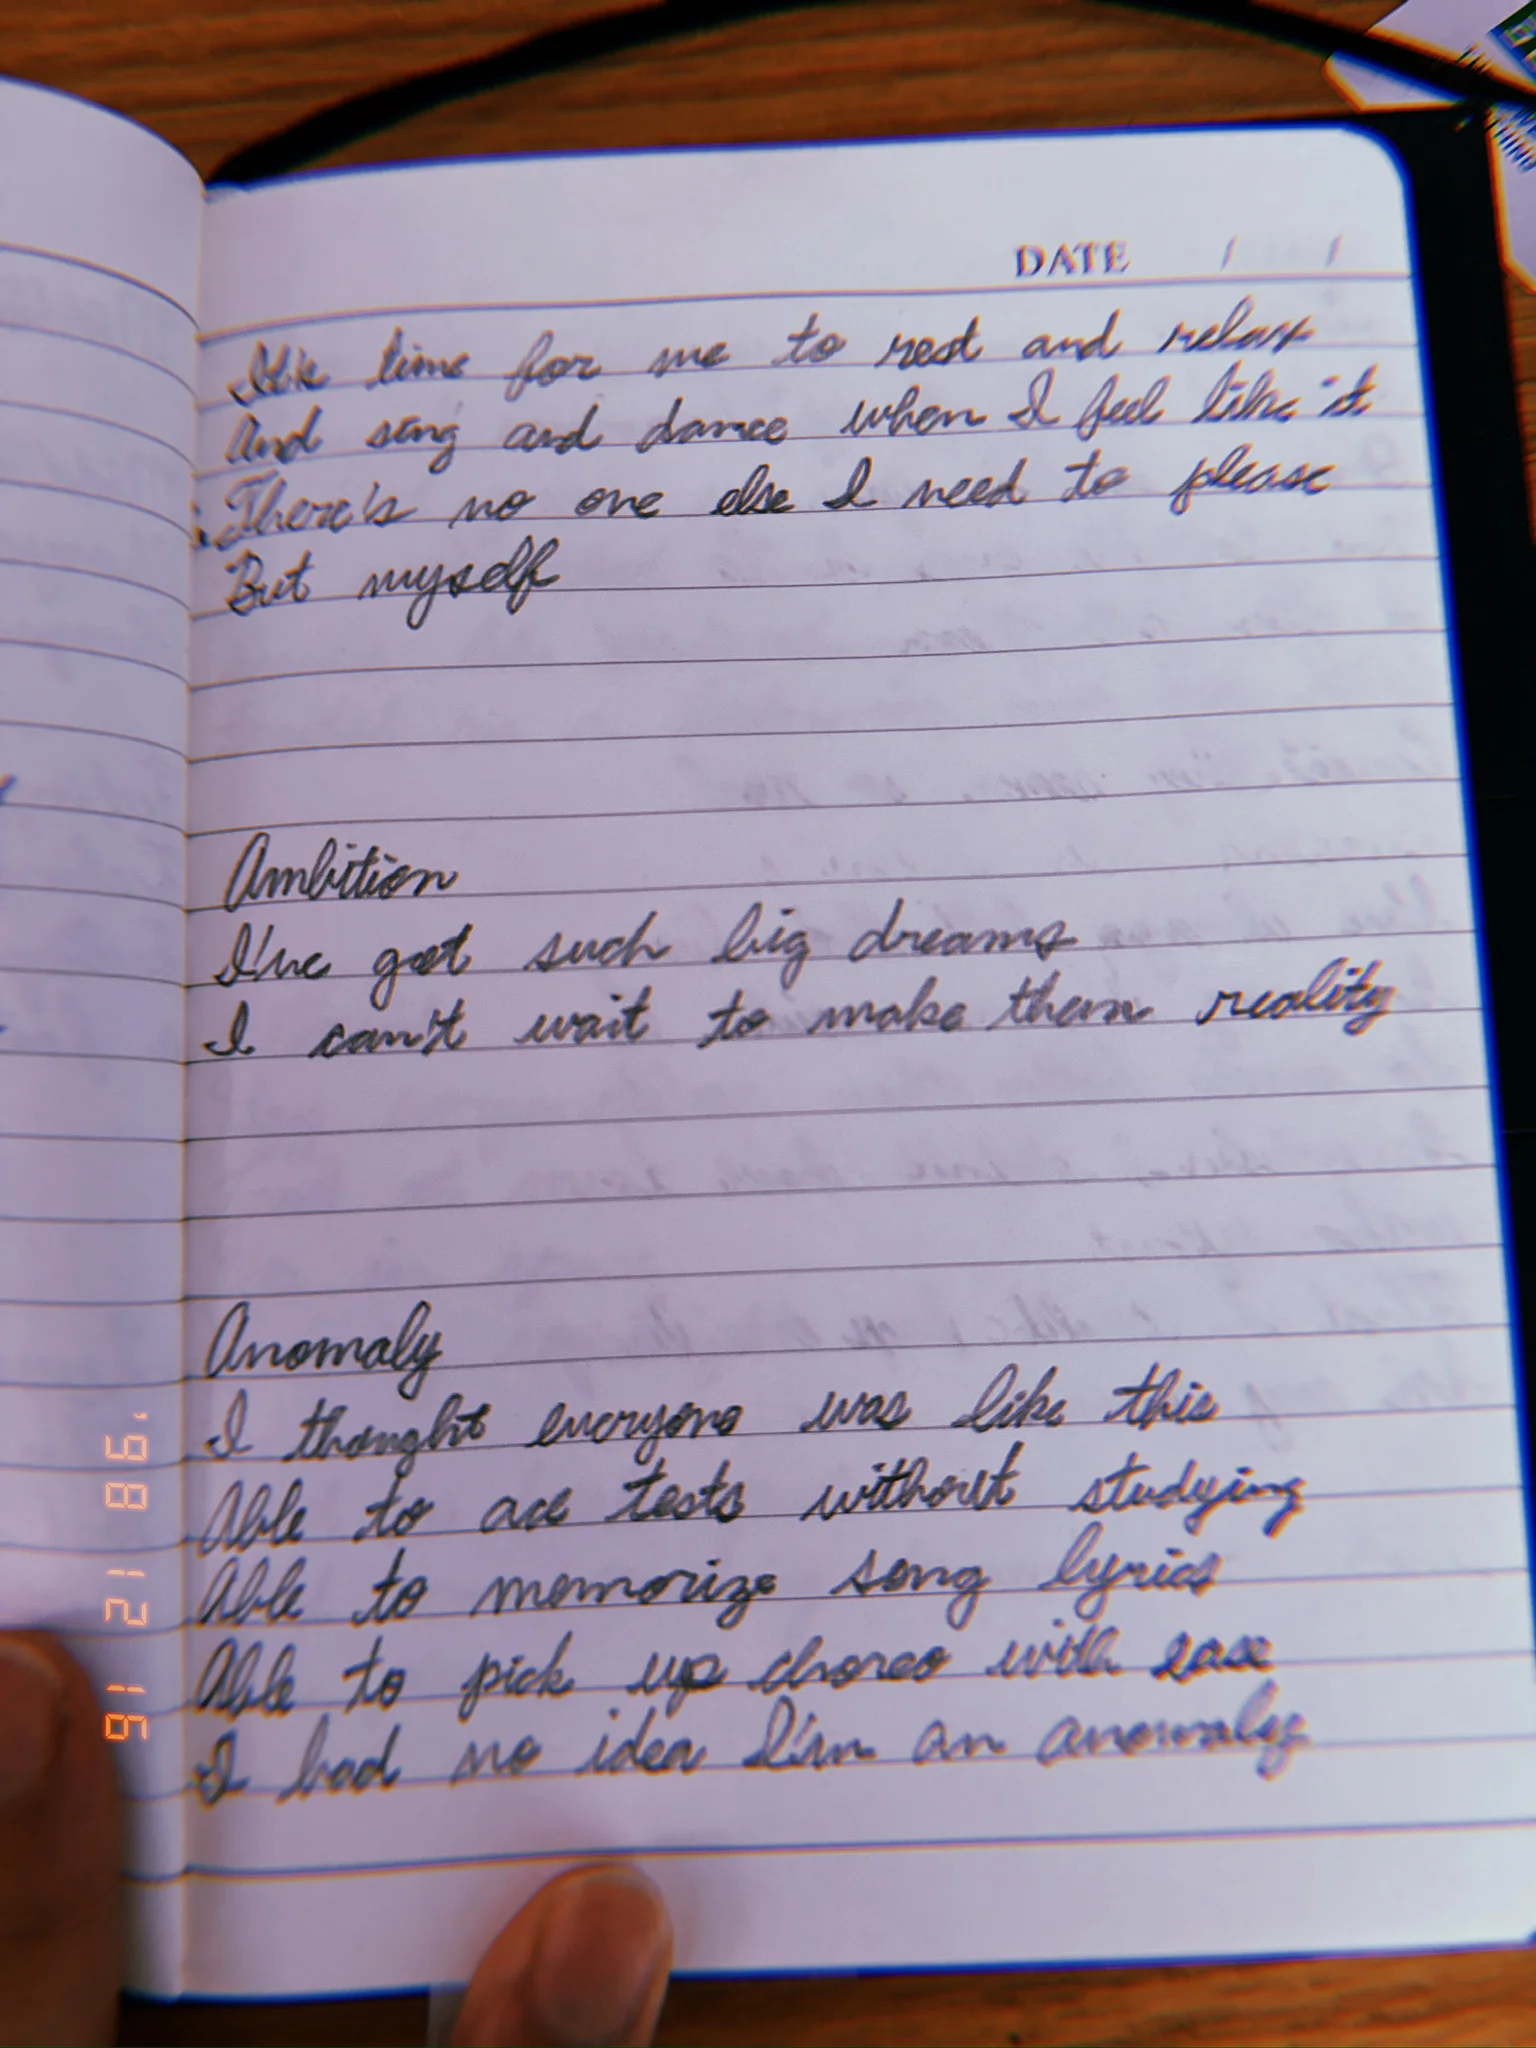 DATE / /
It's time for me to rest and relax
And sing and dance when I feel like it
There's no one else I need to please
But myself
Ambition
I've got such big dreams
I can't wait to make them reality
Anomaly
I thought everyone was like this
Able to ace tests without studying
Able to memorize song lyrics
Able to pick up choreo with ease
I had no idea I'm an anomaly
91 21 86'